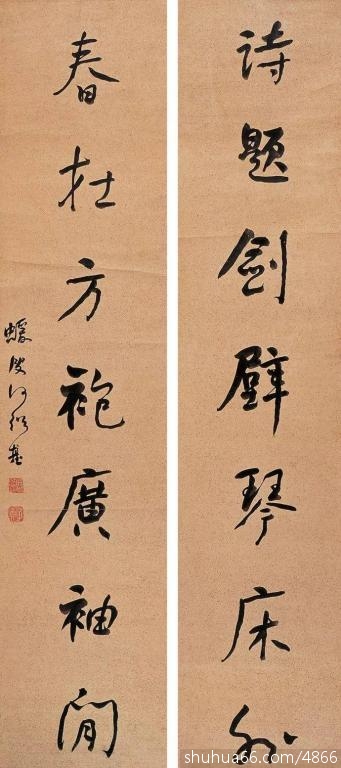 詩題劍壁琴床外
春在方袍廣袖間
蝯叟何紹基
shuhua66.com/4866